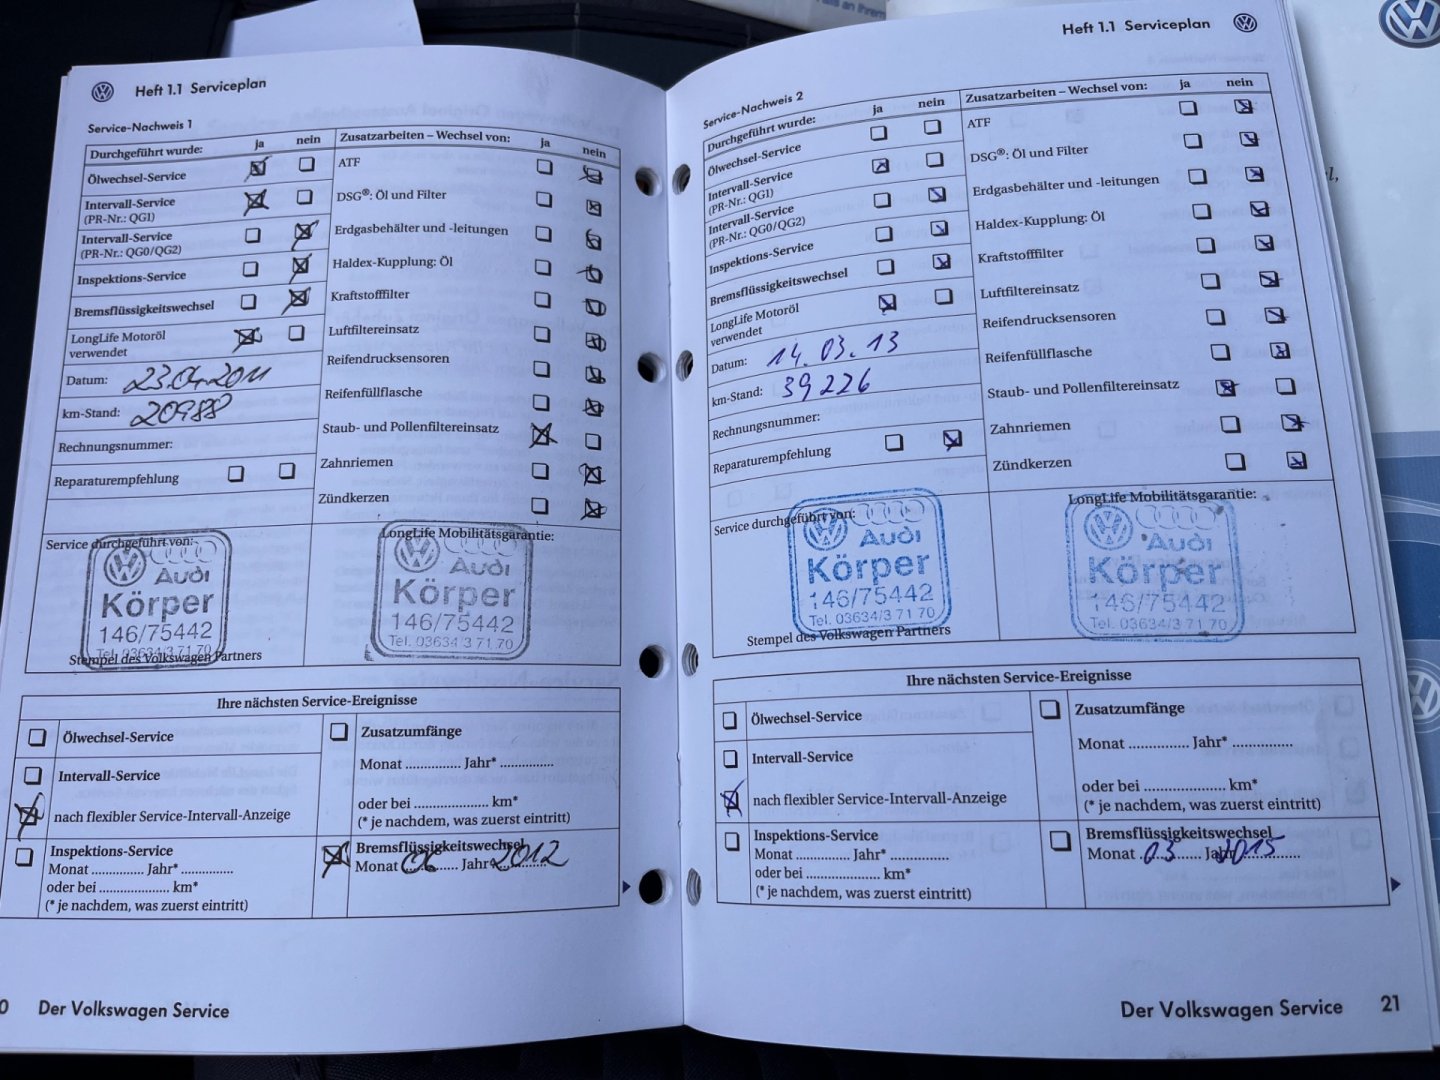 Heft 1.1 Serviceplan
Service-Nachweis 1
Durchgeführt wurde: ja nein
Ölwechsel-Service
Intervall-Service
(PR-Nr.: QG1)
Intervall-Service
(PR-Nr.: QG0/QG2)
Inspektions-Service
Bremsflüssigkeitswechsel
LongLife Motoröl
verwendet
Datum: 23.04.2011
km-Stand: 20988
Rechnungsnummer:
Reparaturempfehlung
Zusatzarbeiten – Wechsel von: ja nein
ATF
DSG®: Öl und Filter
Erdgasbehälter und -leitungen
Haldex-Kupplung: Öl
Kraftstofffilter
Luftfiltereinsatz
Reifendrucksensoren
Reifenfüllflasche
Staub- und Pollenfiltereinsatz
Zahnriemen
Zündkerzen
Service durchgeführt von:
Audi
Körper
146/75442
Tel. 03634/3 71 70
Stempel des Volkswagen Partners
LongLife Mobilitätsgarantie:
Audi
Körper
146/75442
Tel. 03634/3 71 70
Ihre nächsten Service-Ereignisse
Ölwechsel-Service
Intervall-Service
nach flexibler Service-Intervall-Anzeige
Inspektions-Service
Monat ............... Jahr* ...............
oder bei .................... km*
(* je nachdem, was zuerst eintritt)
Zusatzumfänge
Monat ............... Jahr* ...............
oder bei .................... km*
(* je nachdem, was zuerst eintritt)
Bremsflüssigkeitswechsel
Monat 06 Jahr* 2012
Der Volkswagen Service
Heft 1.1 Serviceplan
Service-Nachweis 2
Durchgeführt wurde: ja nein
Ölwechsel-Service
Intervall-Service
(PR-Nr.: QG1)
Intervall-Service
(PR-Nr.: QG0/QG2)
Inspektions-Service
Bremsflüssigkeitswechsel
LongLife Motoröl
verwendet
Datum: 14.03.13
km-Stand: 39226
Rechnungsnummer:
Reparaturempfehlung
Zusatzarbeiten – Wechsel von: ja nein
ATF
DSG®: Öl und Filter
Erdgasbehälter und -leitungen
Haldex-Kupplung: Öl
Kraftstofffilter
Luftfiltereinsatz
Reifendrucksensoren
Reifenfüllflasche
Staub- und Pollenfiltereinsatz
Zahnriemen
Zündkerzen
Service durchgeführt von:
Audi
Körper
146/75442
Tel. 03634/3 71 70
Stempel des Volkswagen Partners
LongLife Mobilitätsgarantie:
Audi
Körper
146/75442
Tel. 03634/3 71 70
Ihre nächsten Service-Ereignisse
Ölwechsel-Service
Intervall-Service
nach flexibler Service-Intervall-Anzeige
Inspektions-Service
Monat ............... Jahr* ...............
oder bei .................... km*
(* je nachdem, was zuerst eintritt)
Zusatzumfänge
Monat ............... Jahr* ...............
oder bei .................... km*
(* je nachdem, was zuerst eintritt)
Bremsflüssigkeitswechsel
Monat 03 Jahr* 2015
Der Volkswagen Service 21